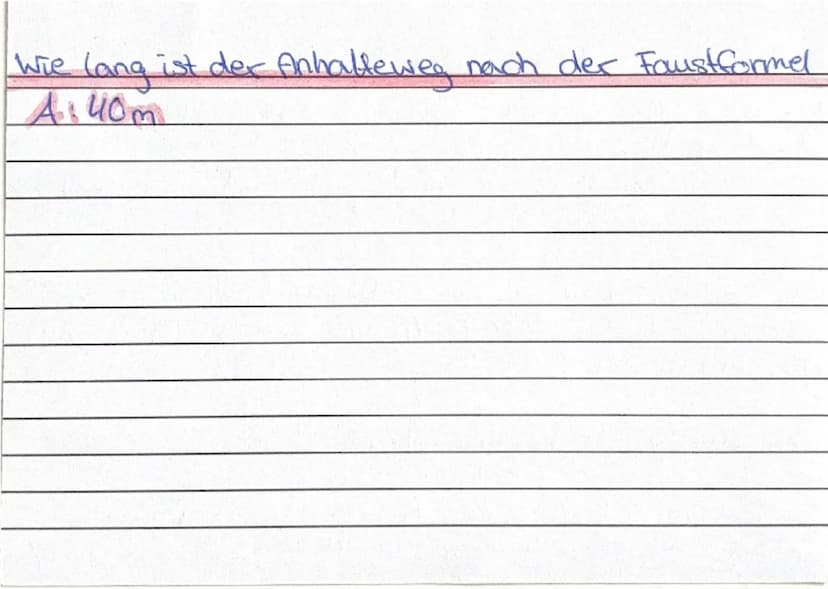 Wie lang ist der Anhalteweg nach der Faustformel
A: 40m